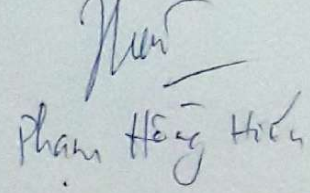 Phạm Hồng Hiến